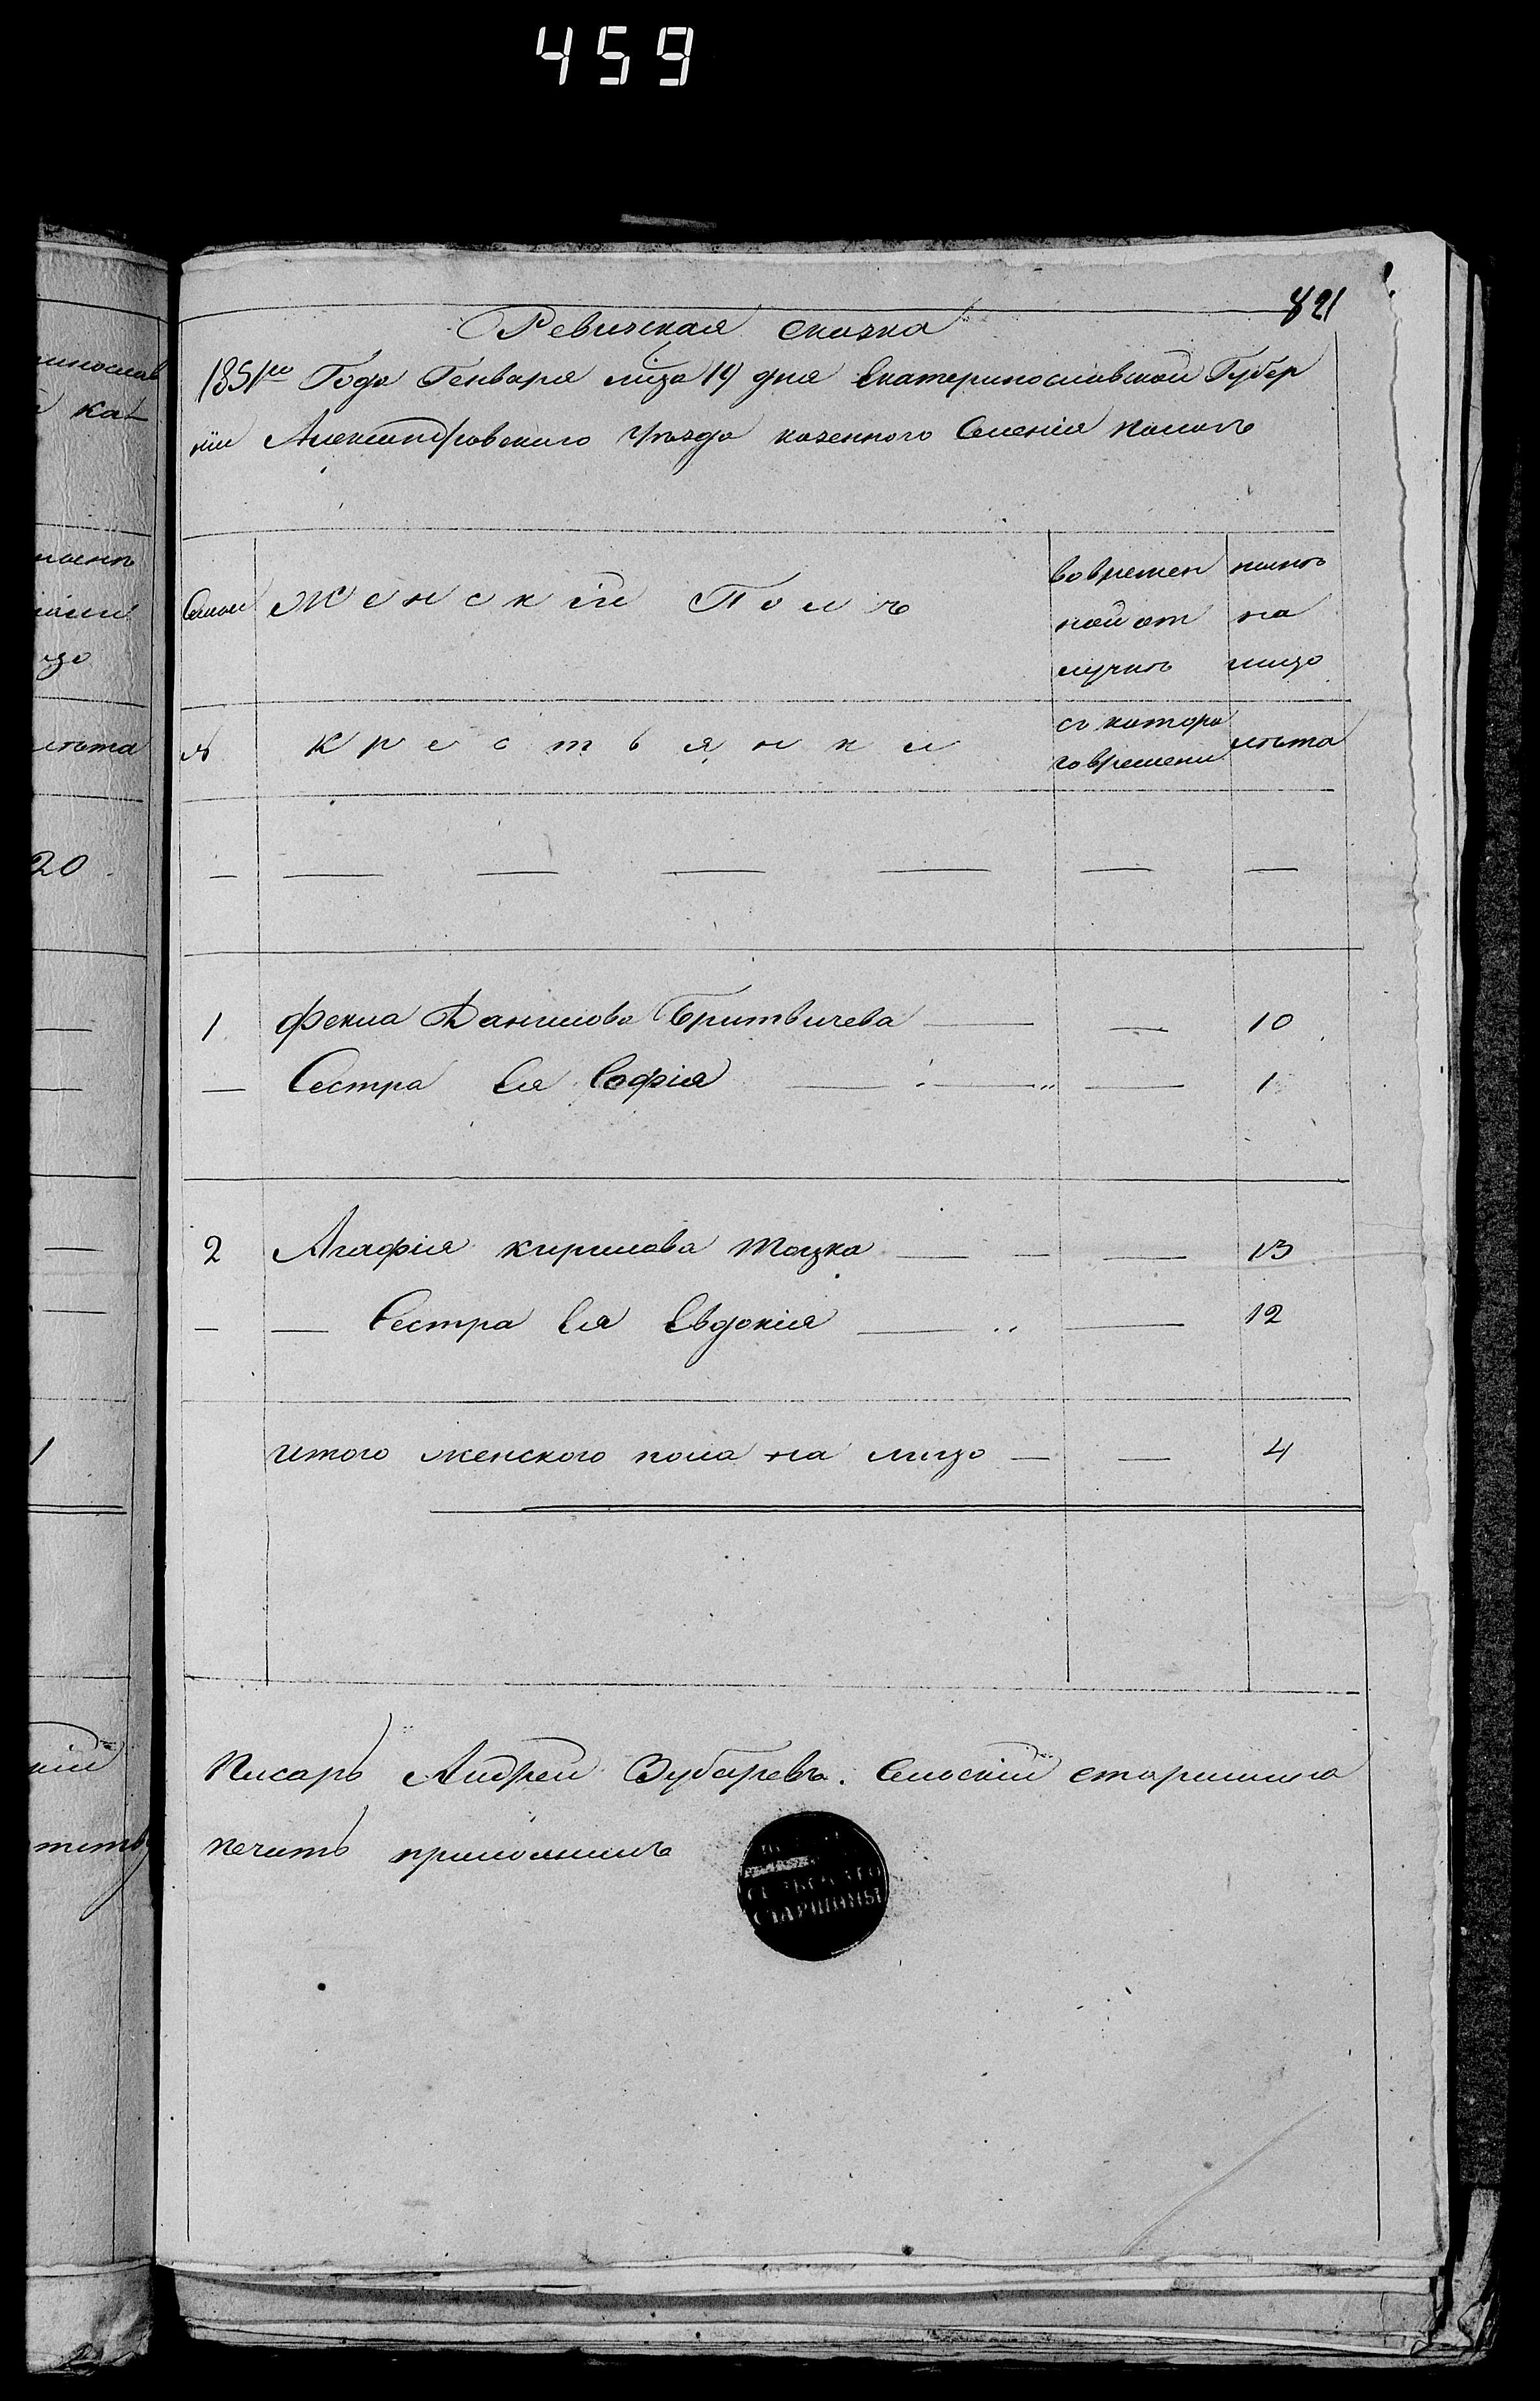 459
821
Ревизская сказка
1851го Года Генваря мца 19 дня Екатеринославской Губер
ніи Александровского уѣзда казенного Селенія
Женскій Полъ
во времен
ной от
лучкѣ
нынѣ
на
лицо
№
Крестьянки
съ которо
го времени
лѣта
1 Фекла Данилова Бритвичева — — 10
— Сестра Ея Софія — — 1
2 Агафія Кирилова Тоцка — — 13
— — Сестра Ея Евдокія — — 12
итого женского пола на лицо — — 4
Писарь Андрей Зубаревъ. Селскій старшина
печать приложилъ
СТАРШИНЫ
20
1